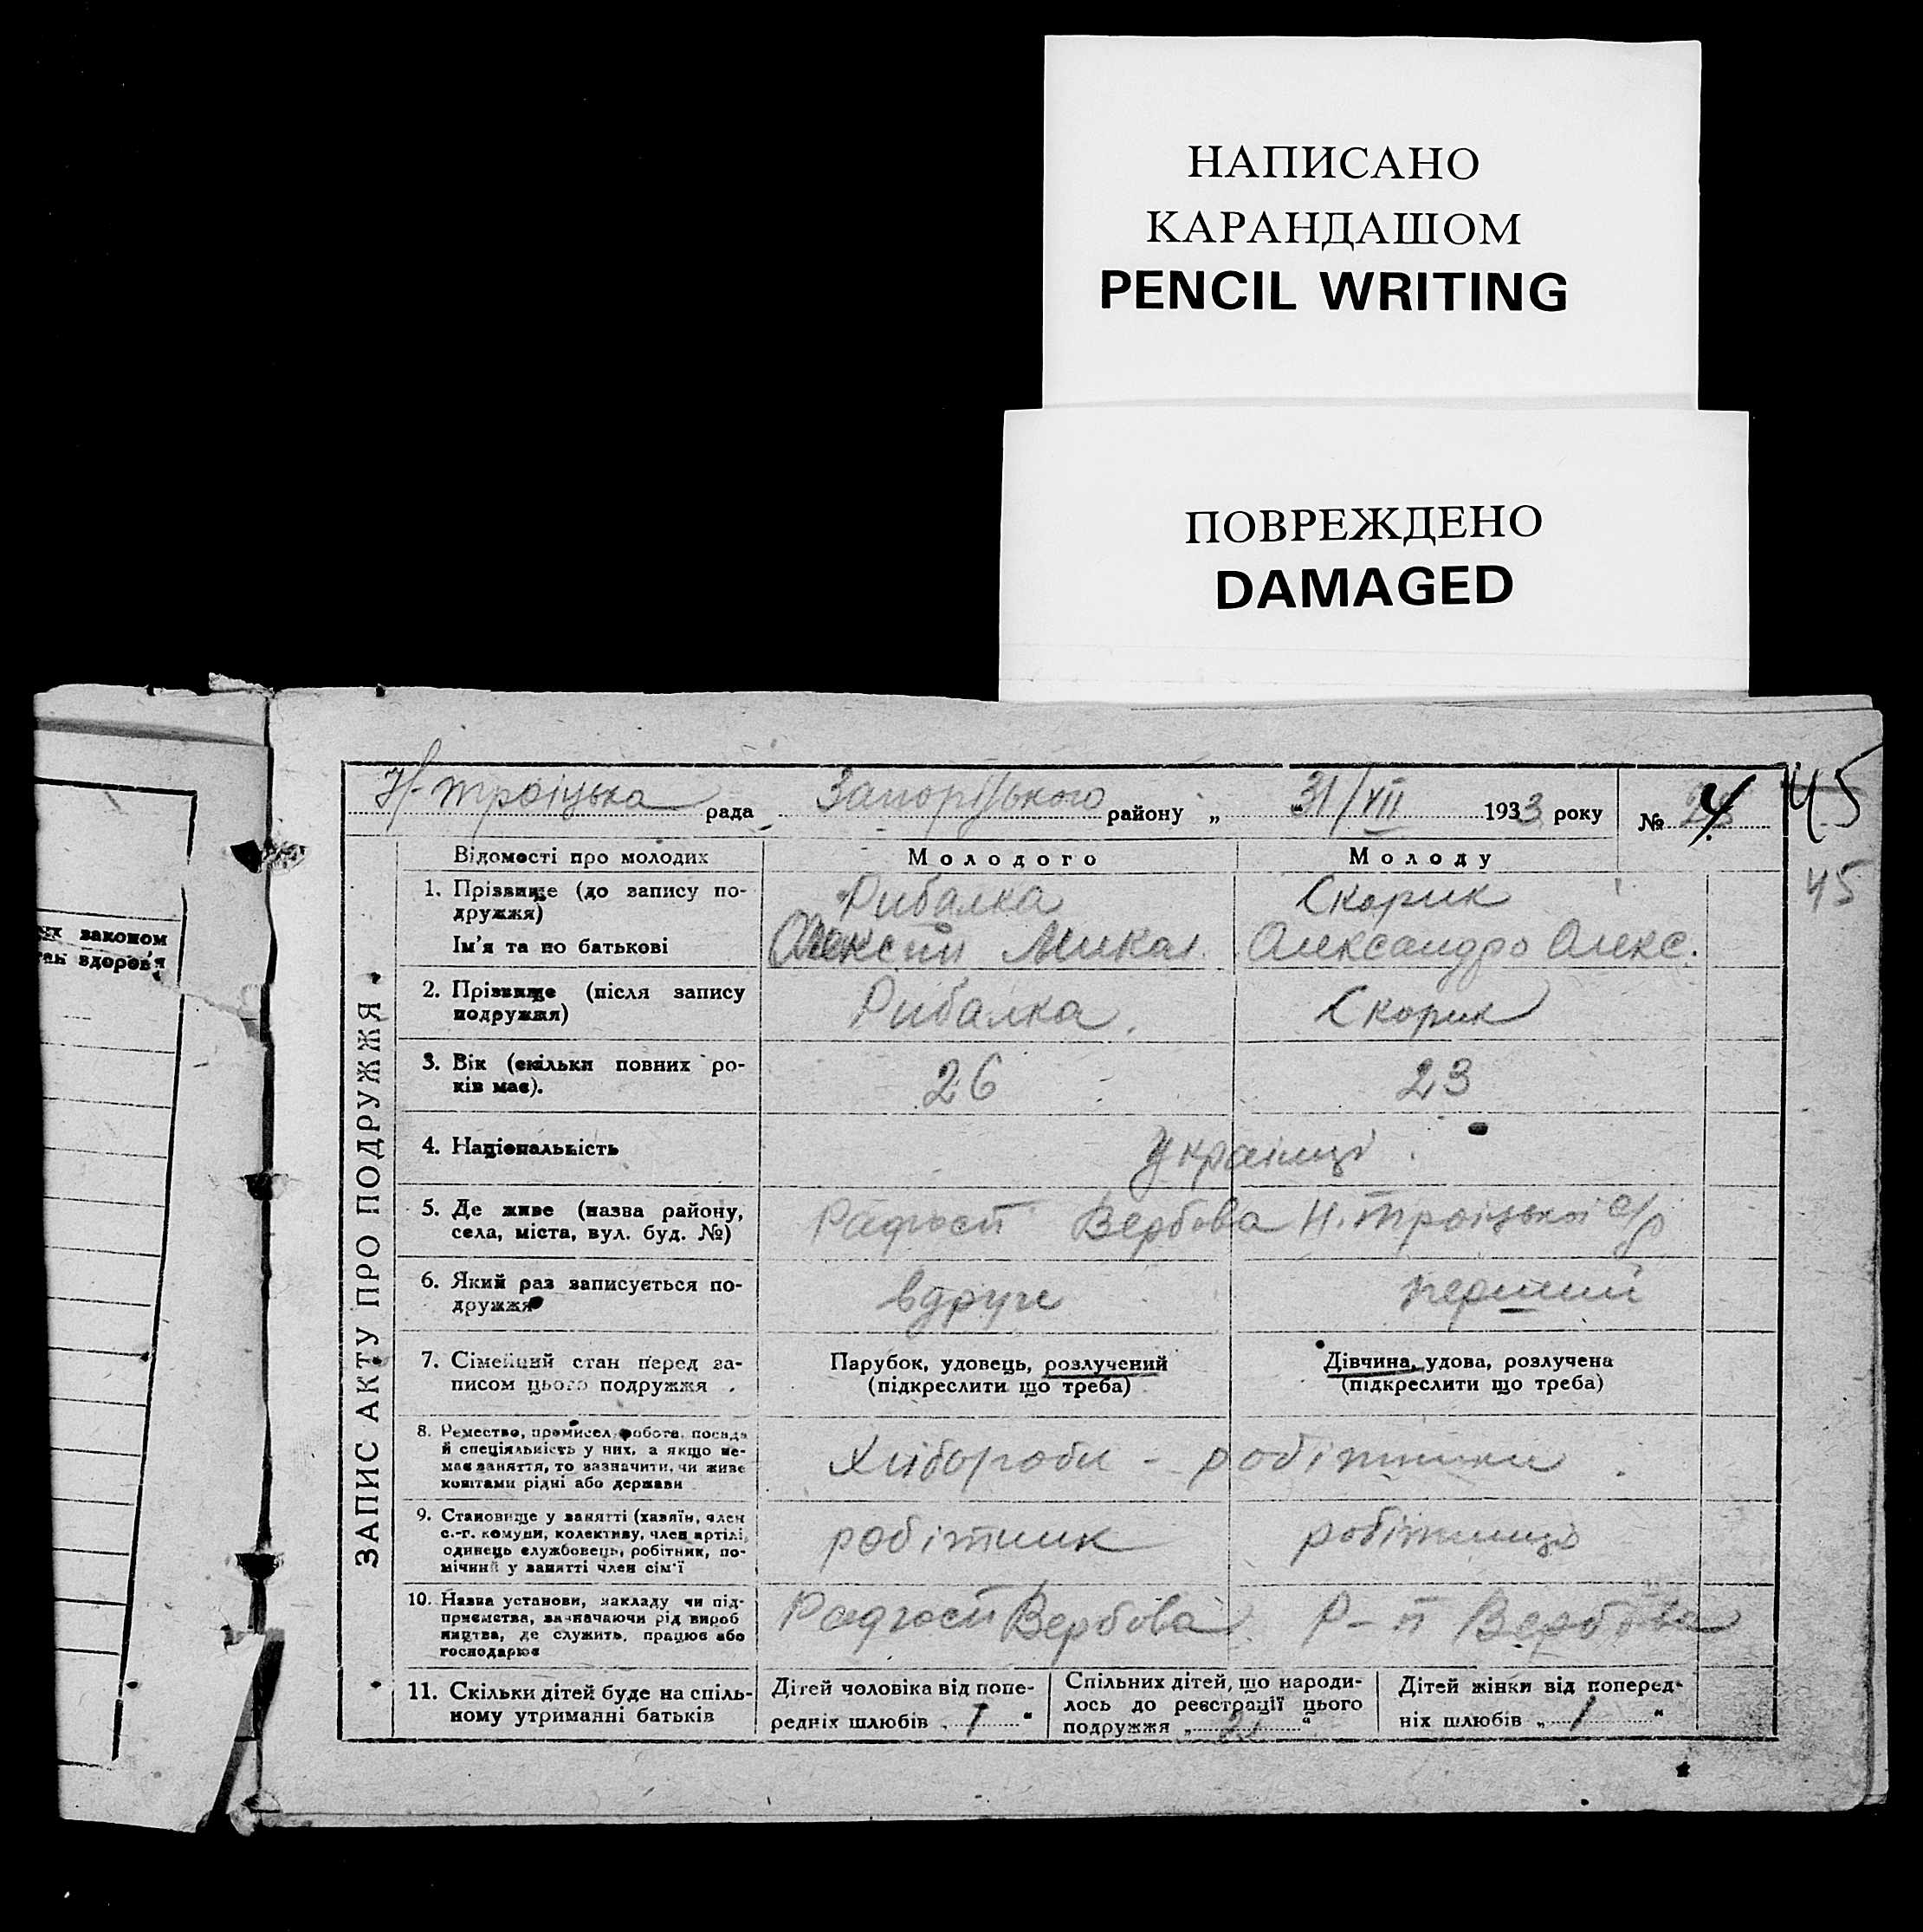 НАПИСАНО
КАРАНДАШОМ
PENCIL WRITING
ПОВРЕЖДЕНО
DAMAGED
Н-троіцька рада Запорізького району „ 31/VII 1933 року № 4
45
45
их законом
ан здоров'я
ЗАПИС АКТУ ПРО ПОДРУЖЖЯ
Відомості про молодих
Молодого
Молоду
1. Прізвище (до запису по-
дружжя)
Рибалка
Скорик
Ім'я та по батькові
Олексій Микол.
Олександра Олекс.
2. Прізвище (після запису
подружжя)
Рибалка
Скорик
3. Вік (скільки повних ро-
ків має).
26
23
4. Національність
Українці
5. Де живе (назва району,
села, міста, вул. буд. №)
Радгосп Вербова Н. Троіцької с/р
6. Який раз записується по-
дружжя
вдруге
перший
7. Сімейний стан перед за-
писом цього подружжя
Парубок, удовець, розлучений
(підкреслити що треба)
Дівчина, удова, розлучена
(підкреслити що треба)
8. Ремество, промисел, робота, посада
й спеціяльність у них, а якщо не-
має заняття, то зазначити, чи живе
коштами рідні або держави
Хлібороби - робітники
9. Становище у занятті (хазяїн, член
с.-г. комуни, колективу, член артілі,
одинець службовець, робітник, по-
мічний у занятті член сім'ї
робітник
робітниця
10. Назва установи, закладу чи під-
приємства, зазначаючи рід вироб
ництва, де служить, працює або
господарює
Радгосп Вербова
Р-п Вербова
11. Скільки дітей буде на спіль-
ному утриманні батьків
Дітей чоловіка від попе-
редніх шлюбів „ 1 "
Спільних дітей, що народи-
лось до реєстрації цього
подружжя „ "
Дітей жінки від поперед-
ніх шлюбів „ / "